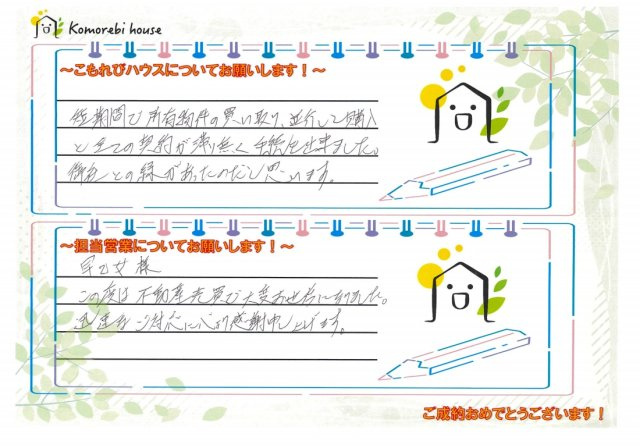 Komorebi house
~こもれびハウスについてお願いします!~
短期間で所有物件の買い取り、並行して購入
と全ての契約が滞り無く手続き出来ました。
御社との縁があったのだと思います。
~担当営業についてお願いします!~
早乙女様
この度は不動産売買で大変お世話になりました。
迅速なご対応に心より感謝申し上げます。
ご成約おめでとうございます!